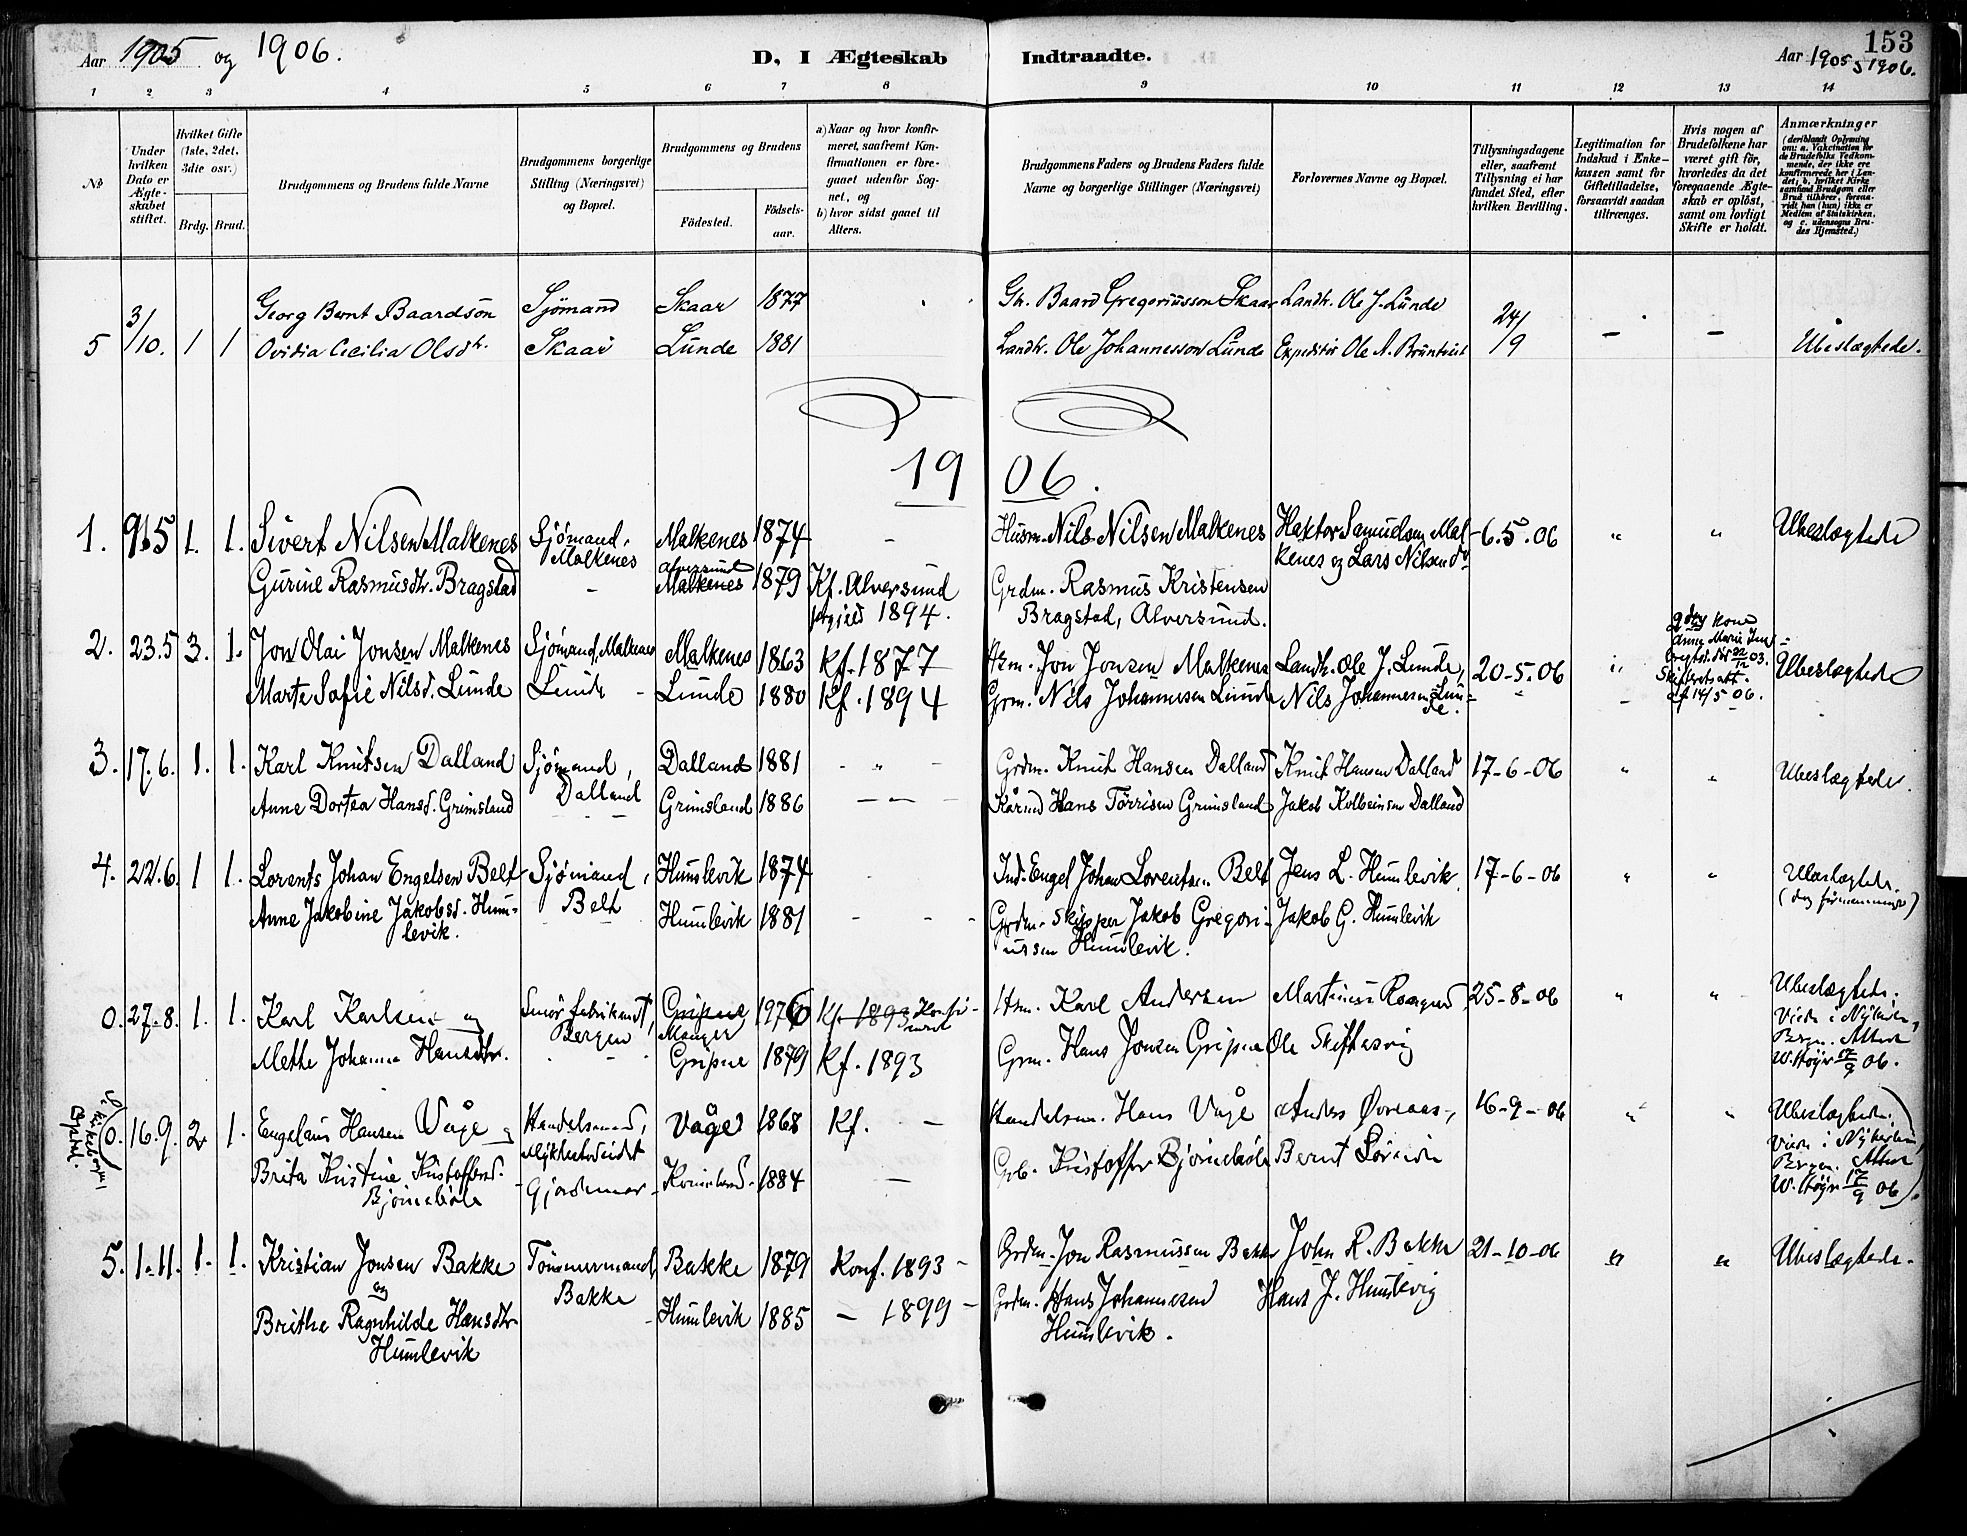 Aar 1905 og 1906.
D, I Ægteskab Indtraadte.
153
Aar 1905 1906.
1 2 3 4 5 6 7 8 9 10 11 12 13 14
No
Under hvilken Dato er Ægteskabet stiftet.
Hvilket Gifte (1ste, 2det, 3die osv.)
Brdg. Brud.
Brudgommens og Brudens fulde Navne
Brudgommens borgerlige Stilling (Næringsvei) og Bopæl.
Brudgommens og Brudens
Födested.
Födsels-aar.
a) Naar og hvor konfir-
meret, saafremt Kon-
firmationen er fore-
gaaet udenfor Sog-
net, og
b) hvor sidst gaaet til
Alters.
Brudgommens Faders og Brudens Faders fulde
Navne og borgerlige Stillinger (Næringsvei)
Forlovernes Navne og Bopæl.
Tillysningsdagene
eller, saafremt
Tillysning ei har
fundet Sted, efter
hvilken Bevilling.
Legitimation for
Indskud i Enke-
kassen samt for
Giftetilladelse,
forsaavidt saadan
tiltrænges.
Hvis nogen af
Brudefolkene har
været gift för,
hvorledes da det
foregaaende Ægte-
skab er oplöst,
samt om lovligt
Skifte er holdt.
Anmærkninger
(deriblandt Oplysning
om: a. Vakcination for
de Brudefolks Vedkom-
mende, der ikke ere
konfirmerede her i Lan-
det; b. hvilket Kirke
samfund Brudgom eller
Brud tilhörer, forsaa-
vidt han (hun) ikke er
Medlem af Statskirken,
og c. udensogns Bru-
des Hjemsted.)
5 3/10. 1 1 Georg Bernt Baardsön Sjömand Skaar 1877 Baard Gregoriusson Skaar Landh. Ole J. Lunde 24/9 — —
Ovidia Cecilia Olsdr. Skaar Lunde 1881 Landh. Ole Johannesson Lunde Expeditör Ole A. Ubeslægtede.
1906.
1. 9.5 1. 1. Sivert Nilsen Malkenes Sjömand, Malkenes Malkenes 1874 - Husm. Nils Nilsen Malkenes Hektor Samuelsen Mal- 6.5.06 " " Ubeslægtede
kenes og Lars Nilsen do
Gurine Rasmusdtr. Bragstad - Alversund Malkenes 1879 Kf. Alversund 1894. Grdm. Rasmus Kristensen
Bragstad, Alversund.
2. 23.5 3. 1. Jon Olai Jonsen Malkenes Sjömand, Malkenes Malkenes 1863 Kf. 1877 Hsm. Jon Jonsen Malkenes Landh. Ole J. Lunde, 20-5-06 " Kone Anne Marie död 22/12 03. Skifteretsatt. af 14/5 06. Ubeslægtede
Marte Sofie Nilsd. Lunde Lunde - Lunde 1880 Kf. 1894 Grm. Nils Johannesen Lunde Nils Johannesen Lun-
de.
3. 17.6. 1. 1. Karl Knutsen Dalland Sjömand, Dalland Dalland 1881 - " - Grdm. Knut Hansen Dalland Knut Hansen Dalland 17-6-06 " " Ubeslægtede.
Anne Dortea Hansd. Grimsland Grimsland 1886 - - - Kårmd Hans Törrisen Grimsland Jakob Kolbeinsen Dalland
4. 22.6. 1 1. Lorents Johan Engelsen Belt Sjömand, Belt Humlevik 1874 - Ind. Engel Johan Lorentsen Belt Jens L. Humlevik 17-6-06 " " Ubeslægtede.
Anne Jakobine Jakobsd. Hum-
levik. Humlevik 1881 - - - Grdm. Skipper Jakob Gregori-
ussen Humlevik. Jakob G. Humlevik
0. 27-8. 1. 1. Karl Karlsen og Smörfabrikant, Bergen Gripne Manger 1976 Kf. 1893 Hsm. Karl Andersen Martinus 25-8-06 " " Ubeslægtede.
Viede i Nykirken, Bergen. Attest W. Höyer 17/9 06.
Mette Johanne Hansdtr. Gripne 1879 Kf. 1893 Grm. Hans Jonsen Gripne Ole Skiftesvig
0. 16.9. 2. 1. Engelaus Hansen Våge og Handelsmand, Våge 1868 Kf. - Handelsm. Hans Våge Anders Övreaas, 16-9-06 " " Ubeslægtede.
Viede i Nykirken, Bergen. Attest W. Höyer 17/9 06.
Brita Kristine Kristoffersd. Björneböle 1884 - Kristoffer Björneböle Bernt
5. 1-11. 1. 1. Kristian Jonsen Bakke Tömmermand, Bakke Bakke 1879 Konf. 1893 - Grdm. Jon Rasmussen Bakke John R. Bakke 21-10-06 " " Ubeslægtede.
og
Brithe Ragnhilde Hansdtr. Humlevik 1885 — 1899 - Grdm. Hans Johannesen Hans J. Humlevig
Humlevik Humlevik.